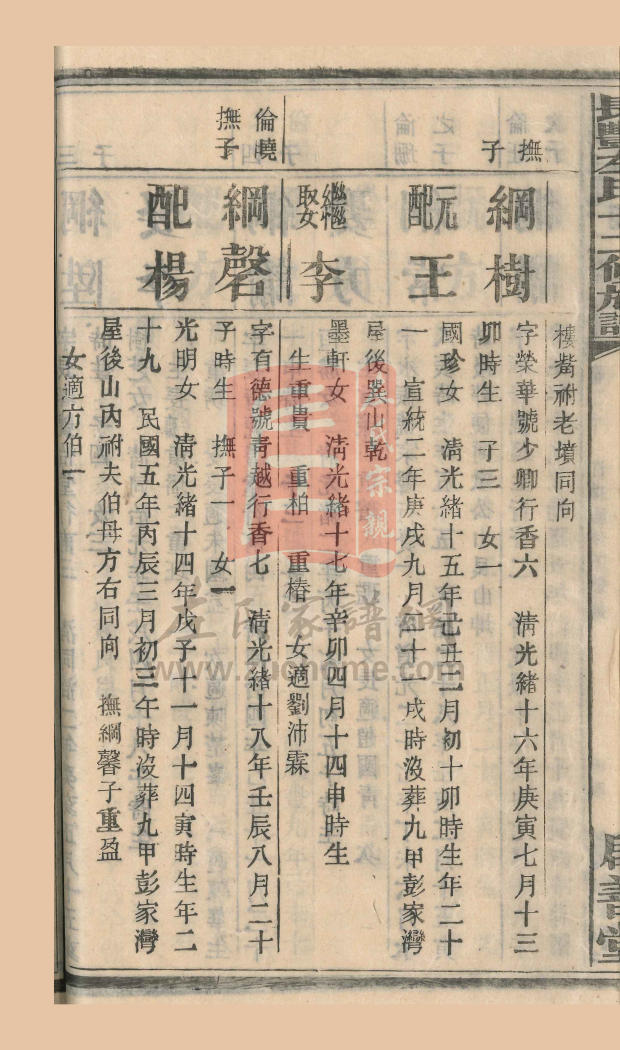 長豐左氏十二修族譜
启善堂
樓觜祔老墳同向
撫
子
綱樹
字榮華號少卿行香六　淸光緒十六年庚寅七月十三
卯時生　子三　女一
元配王
國珍女　淸光緒十五年己丑二月初十卯時生年二十
一　宣統二年庚戌九月二十　戌時沒葬九甲彭家灣
屋後巽山乾
繼娶李
墨軒女　淸光緒十七年辛卯四月十四申時生
生重貴　重柏　重椿　女適劉沛霖
倫曉
撫子
綱磬
字有德號靑越行香七　淸光緒十八年壬辰八月二十
子時生　撫子一　女一
配楊
光明女　淸光緒十四年戊子十一月十四寅時生年二
十九　民國五年丙辰三月初三午時沒葬九甲彭家灣
屋後山內祔夫伯母方右同向　撫綱馨子重盈
女適方伯一
左氏家譜網
www.zuohome.com